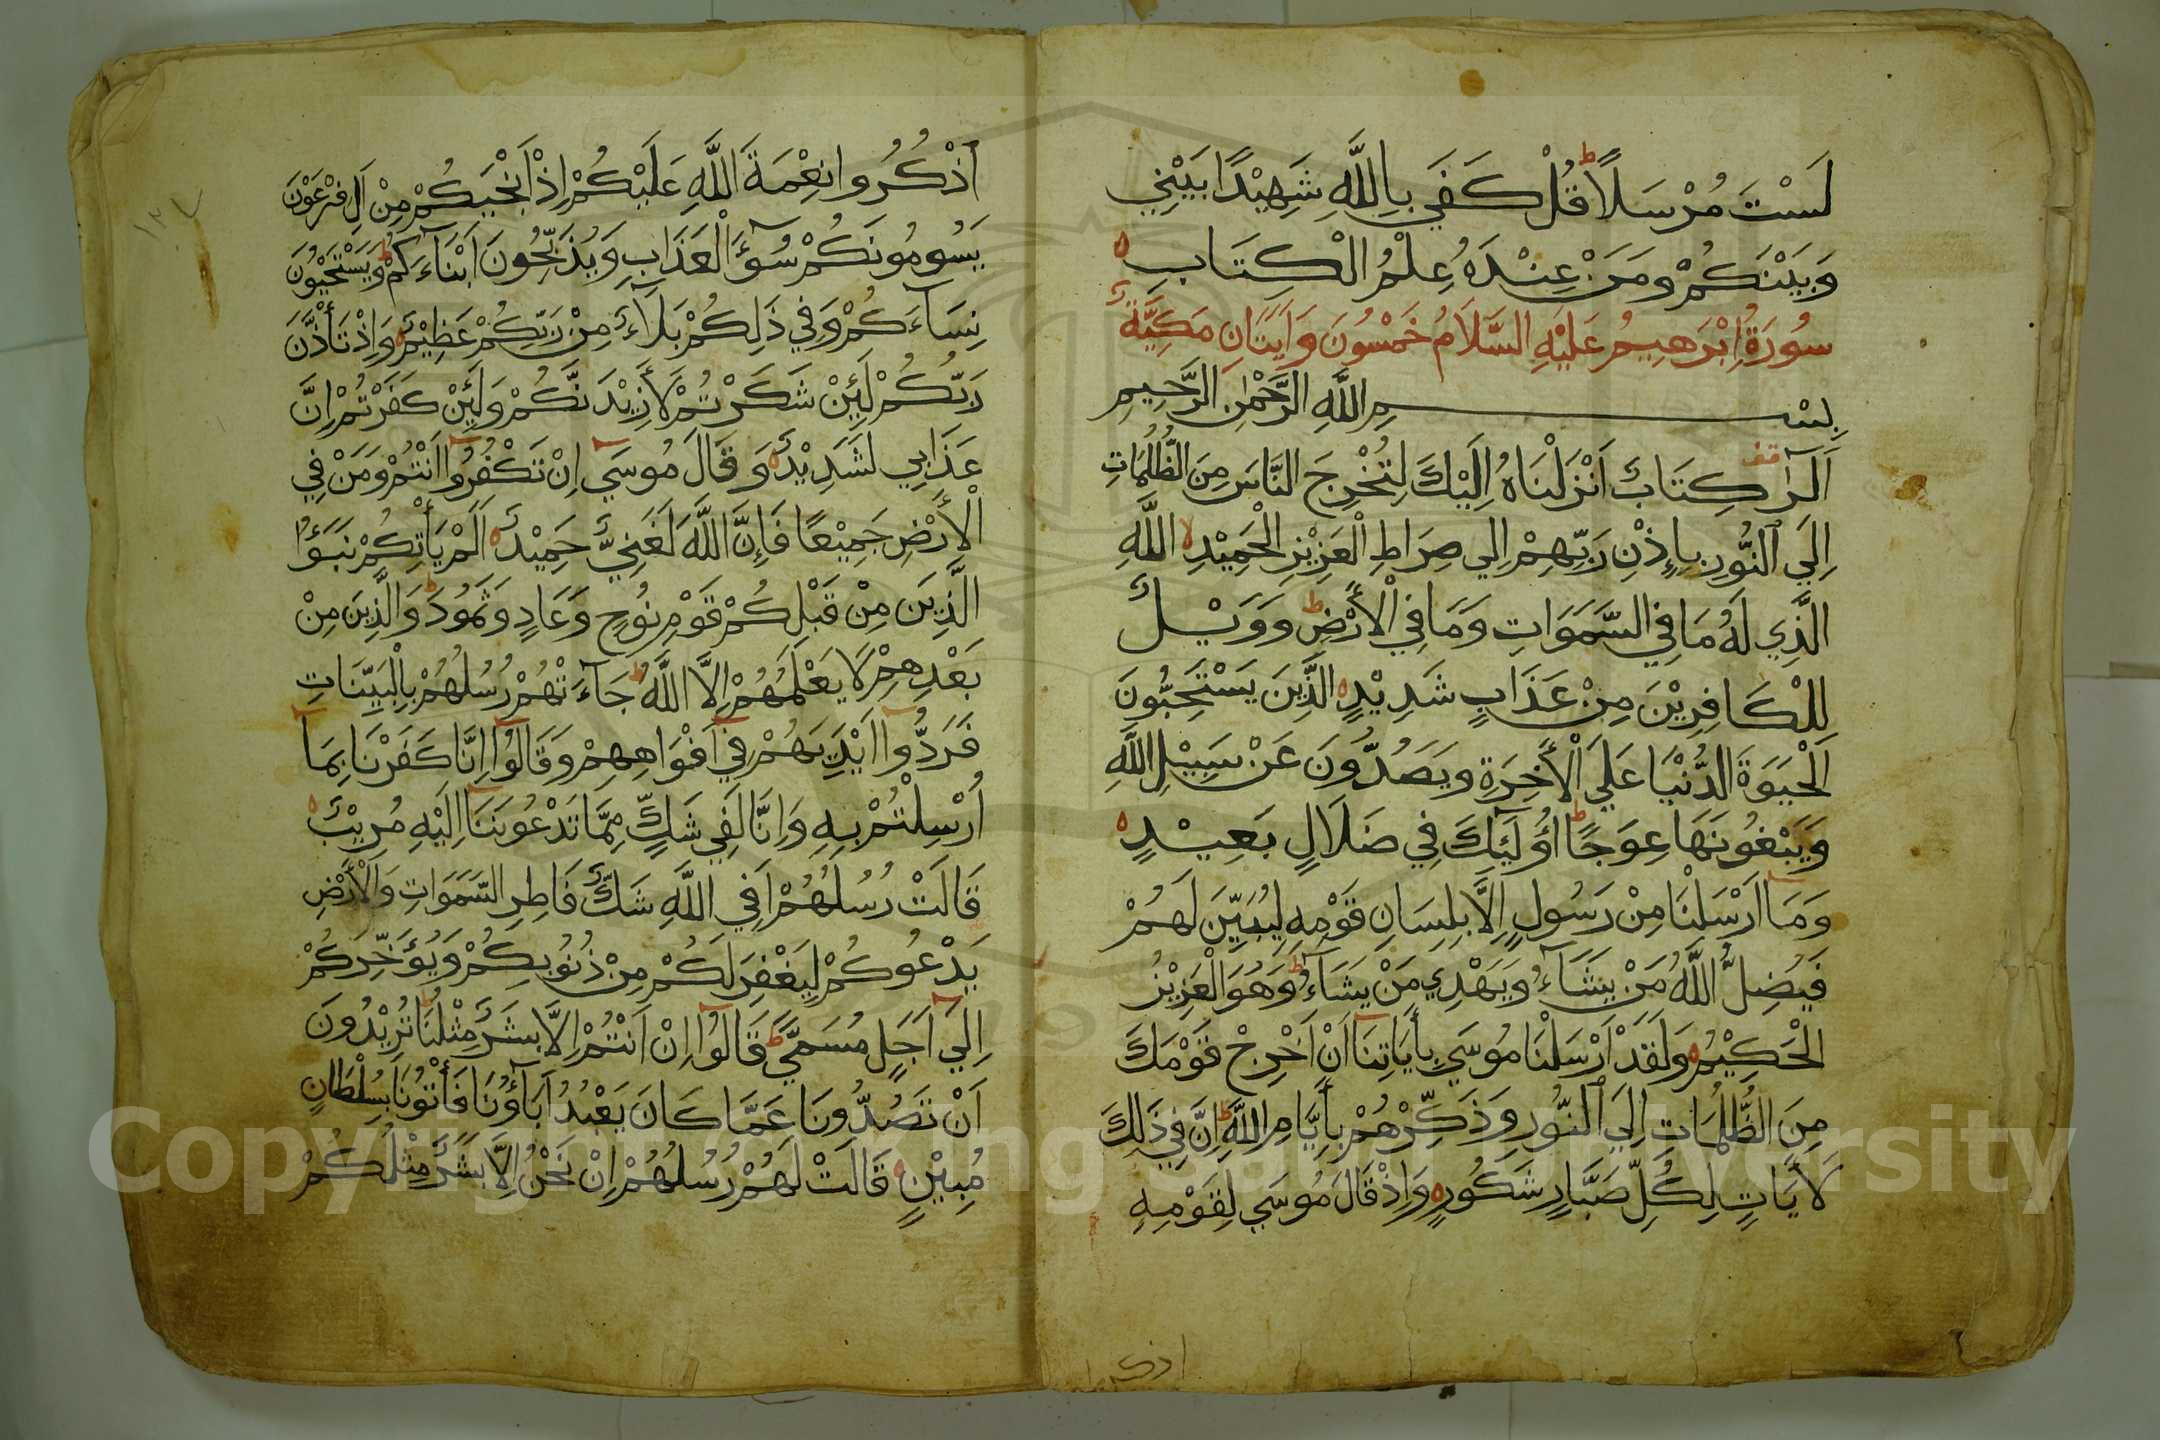 لَسْتَ مُرْسَلًا ط قُلْ كَفَي بِاللَّهِ شَهِيْدًا بَيْنِي
وَبَيْنَكُمْ وَمَنْ عِنْدَهُ عِلْمُ الْكِتَابِ ه
سُورَةُ اِبْرَهِيمُ عَلَيْهِ السَّلَامُ خَمْسُونَ وَاَيَتَانِ مَكِيَّةٌ
بِسْمِ اللَّهِ الرَّحْمٰنِ الرَّحِيمِ
الَرٰ قف كِتَابٌ اَنْزَلْنَاهُ اِلَيْكَ لِتُخْرِجَ النَّاسَ مِنَ الظُّلُمَاتِ
اِلَي النُّورِ بِاِذْنِ رَبِّهِمْ اِلي صِرَاطِ الْعَزِيْزِ الْحَمِيْدِ لا اللَّهِ
الَّذِي لَهُ مَا فِي السَّمَوَاتِ وَمَا فِي الْأَرْضِ ط وَوَيْلٌ
لِلْكَافِرِيْنَ مِنْ عَذَابٍ شَدِيْدٍ ه الَّذِيْنَ يَسْتَحِبُّونَ
الْحَيَوَةَ الدُّنْيَا عَلَي الْأَخِرَةِ وَيَصُدُّونَ عَنْ سَبِيْلِ اللَّهِ
وَيَبْغُونَهَا عِوَجًا ط اُولَئِكَ فِي ضَلَالٍ بَعِيْدٍ ه
وَمَا اَرْسَلْنَا مِنْ رَسُولٍ اِلَّا بِلِسَانِ قَوْمِهِ لِيُبَيِّنَ لَهُمْ
فَيُضِلُّ اللَّهُ مَنْ يَشَآءُ وَيَهْدِي مَنْ يَشَآءُ ط وَهُوَ الْعَزِيْزُ
الْحَكِيْمُ ه وَلَقَدْ اَرْسَلْنَا مُوسَي بِأَيَاتِنَا اَنْ اَخْرِجْ قَوْمَكَ
مِنَ الظُّلُمَاتِ اِلَي النُّورِ وَذَكِّرْهُمْ بِأَيَّامِ اللَّهِ ط اِنَّ فِي ذَلِكَ
لَأَيَاتٍ لِكُلِّ صَبَّارٍ شَكُورٍ ه وَاِذْ قَالَ مُوسَي لِقَوْمِهِ
اذكروا
اذْكُرُوا نِعْمَةَ اللَّهِ عَلَيْكُمْ اِذْ اَنْجَيكُمْ مِنْ اَلِ فِرْعَوْنَ
يَسُومُونَكُمْ سُوْٓءَ الْعَذَابِ وَيُذَبِّحُونَ اَبْنَآءَكُمْ ط وَيَسْتَحْيُونَ
نِسَآءَكُمْ وَفِي ذَلِكُمْ بَلَآءٌ مِنْ رَبِّكُمْ عَظِيْمٌ ه وَاِذْ تَأَذَّنَ
رَبُّكُمْ لَئِنْ شَكَرْتُمْ لَأَزِيْدَنَّكُمْ وَلَئِنْ كَفَرْتُمْ اِنَّ
عَذَابِي لَشَدِيْدٌ ه وَقَالَ مُوسَي اِنْ تَكْفُرُوا اَنْتُمْ وَمَنْ فِي
الْأَرْضِ جَمِيْعًا فَاِنَّ اللَّهَ لَغَنِيٌّ حَمِيْدٌ ه اَلَمْ يَأْتِكُمْ نَبَؤُا
الَّذِيْنَ مِنْ قَبْلِكُمْ قَوْمِ نُوحٍ وَعَادٍ وَثَمُودَ ط وَالَّذِيْنَ مِنْ
بَعْدِهِمْ لَا يَعْلَمُهُمْ اِلَّا اللَّهُ ط جَآءَتْهُمْ رُسُلُهُمْ بِالْبَيِّنَاتِ
فَرَدُّوا اَيْدِيَهُمْ فِي اَفْوَاهِهِمْ وَقَالُوا اِنَّا كَفَرْنَا بِمَا
اُرْسِلْتُمْ بِهِ وَاِنَّا لَفِي شَكٍّ مِمَّا تَدْعُونَنَا اِلَيْهِ مُرِيْبٌ ه
قَالَتْ رُسُلُهُمْ اَفِي اللَّهِ شَكٌّ فَاطِرِ السَّمَوَاتِ وَالْأَرْضِ
يَدْعُوكُمْ لِيَغْفِرَ لَكُمْ مِنْ ذُنُوبِكُمْ وَيُؤَخِّرَكُمْ
اِلَي اَجَلٍ مُسَمًّي ط قَالُوا اِنْ اَنْتُمْ اِلَّا بَشَرٌ مِثْلُنَا ط تُرِيْدُونَ
اَنْ تَصُدُّونَا عَمَّا كَانَ يَعْبُدُ اَبَآؤُنَا فَأْتُونَا بِسُلْطَانٍ
مُبِيْنٍ ه قَالَتْ لَهُمْ رُسُلُهُمْ اِنْ نَحْنُ اِلَّا بَشَرٌ مِثْلُكُمْ
Copyright © King Saud University